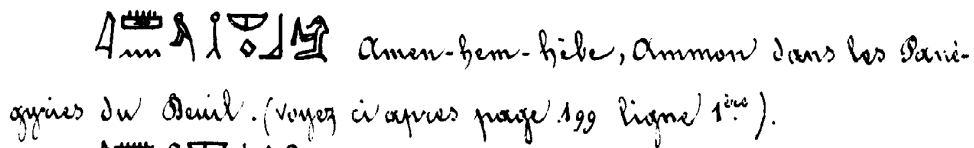 Amen-hem-hêbe, Ammon dans les Pané-
gyries du Deuil. (voyez ci après page 199 ligne 1ère).